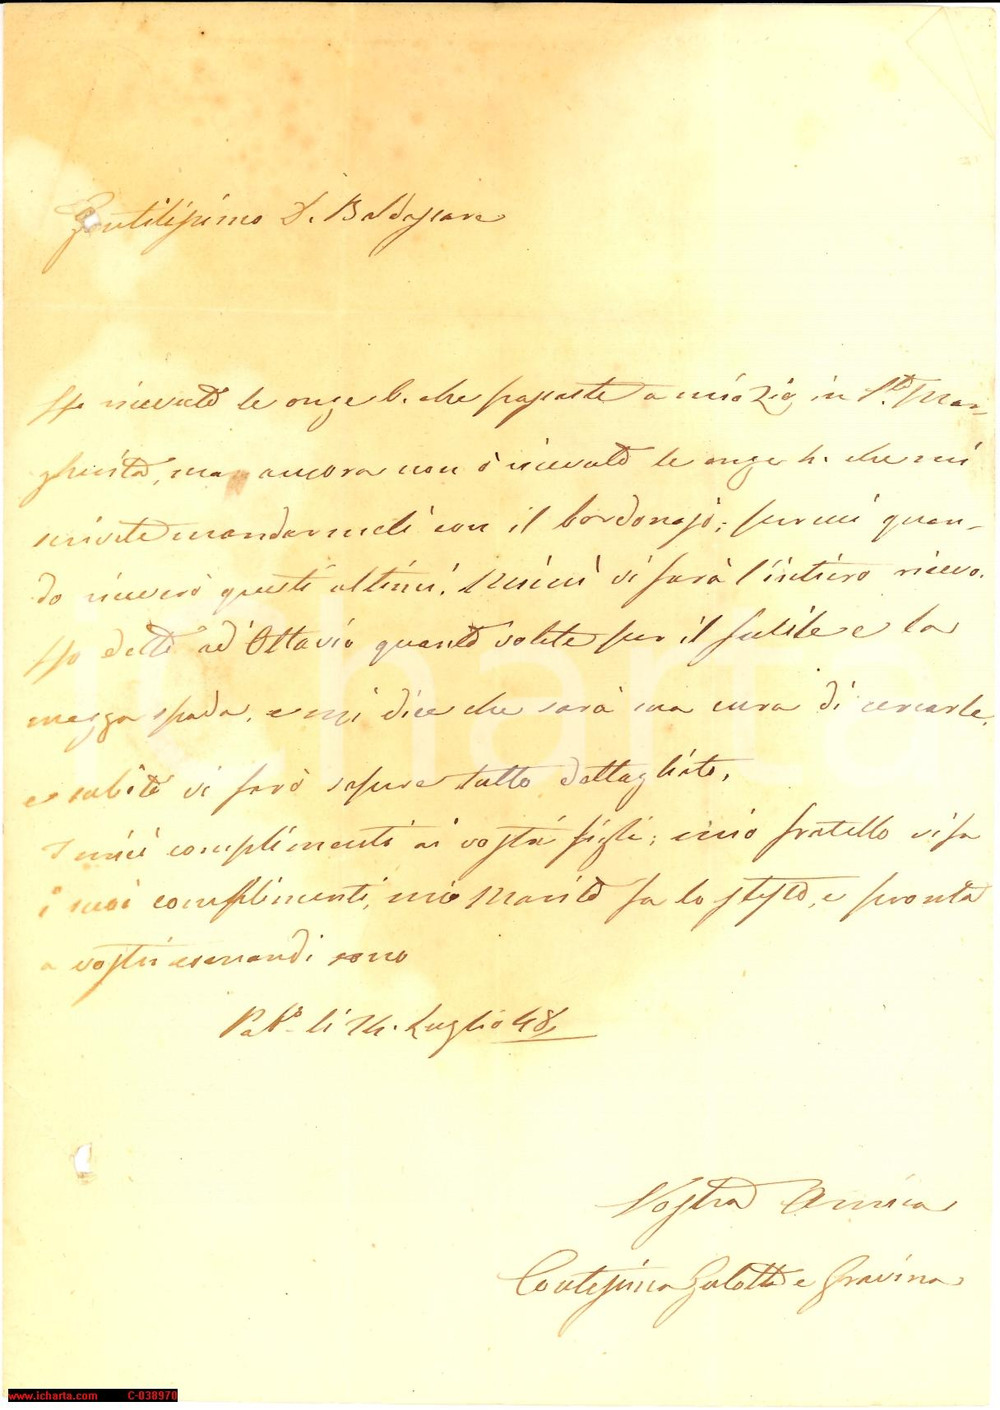 Gentilissimo D. Baldassare
Ho ricevuto le onze 6. che passaste a mia Zia in S.ta Mar-
gherita, ma ancora non ò ricevuto le onze 4. che mi
scrivete mandarmeli con il bordonajo; per cui quan-
do riceverò questi ultimi, vi farà l'intiero ricevo.
Ho detto ad Ottavio quanto volete per il fucile e la
mezza spada, e mi dice che sarà sua cura di cercarle,
e subito vi farò sapere tutto dettagliato.
I miei complimenti ai vostri figli; mio fratello vi fa
i suoi complimenti, mio Marito fa lo stesso, e pronta
a vostri comandi sono
Pal.o li 24. Luglio 48
Vostra Amica
Contessina Gulotta e Gravina
www.icharta.com C-038970